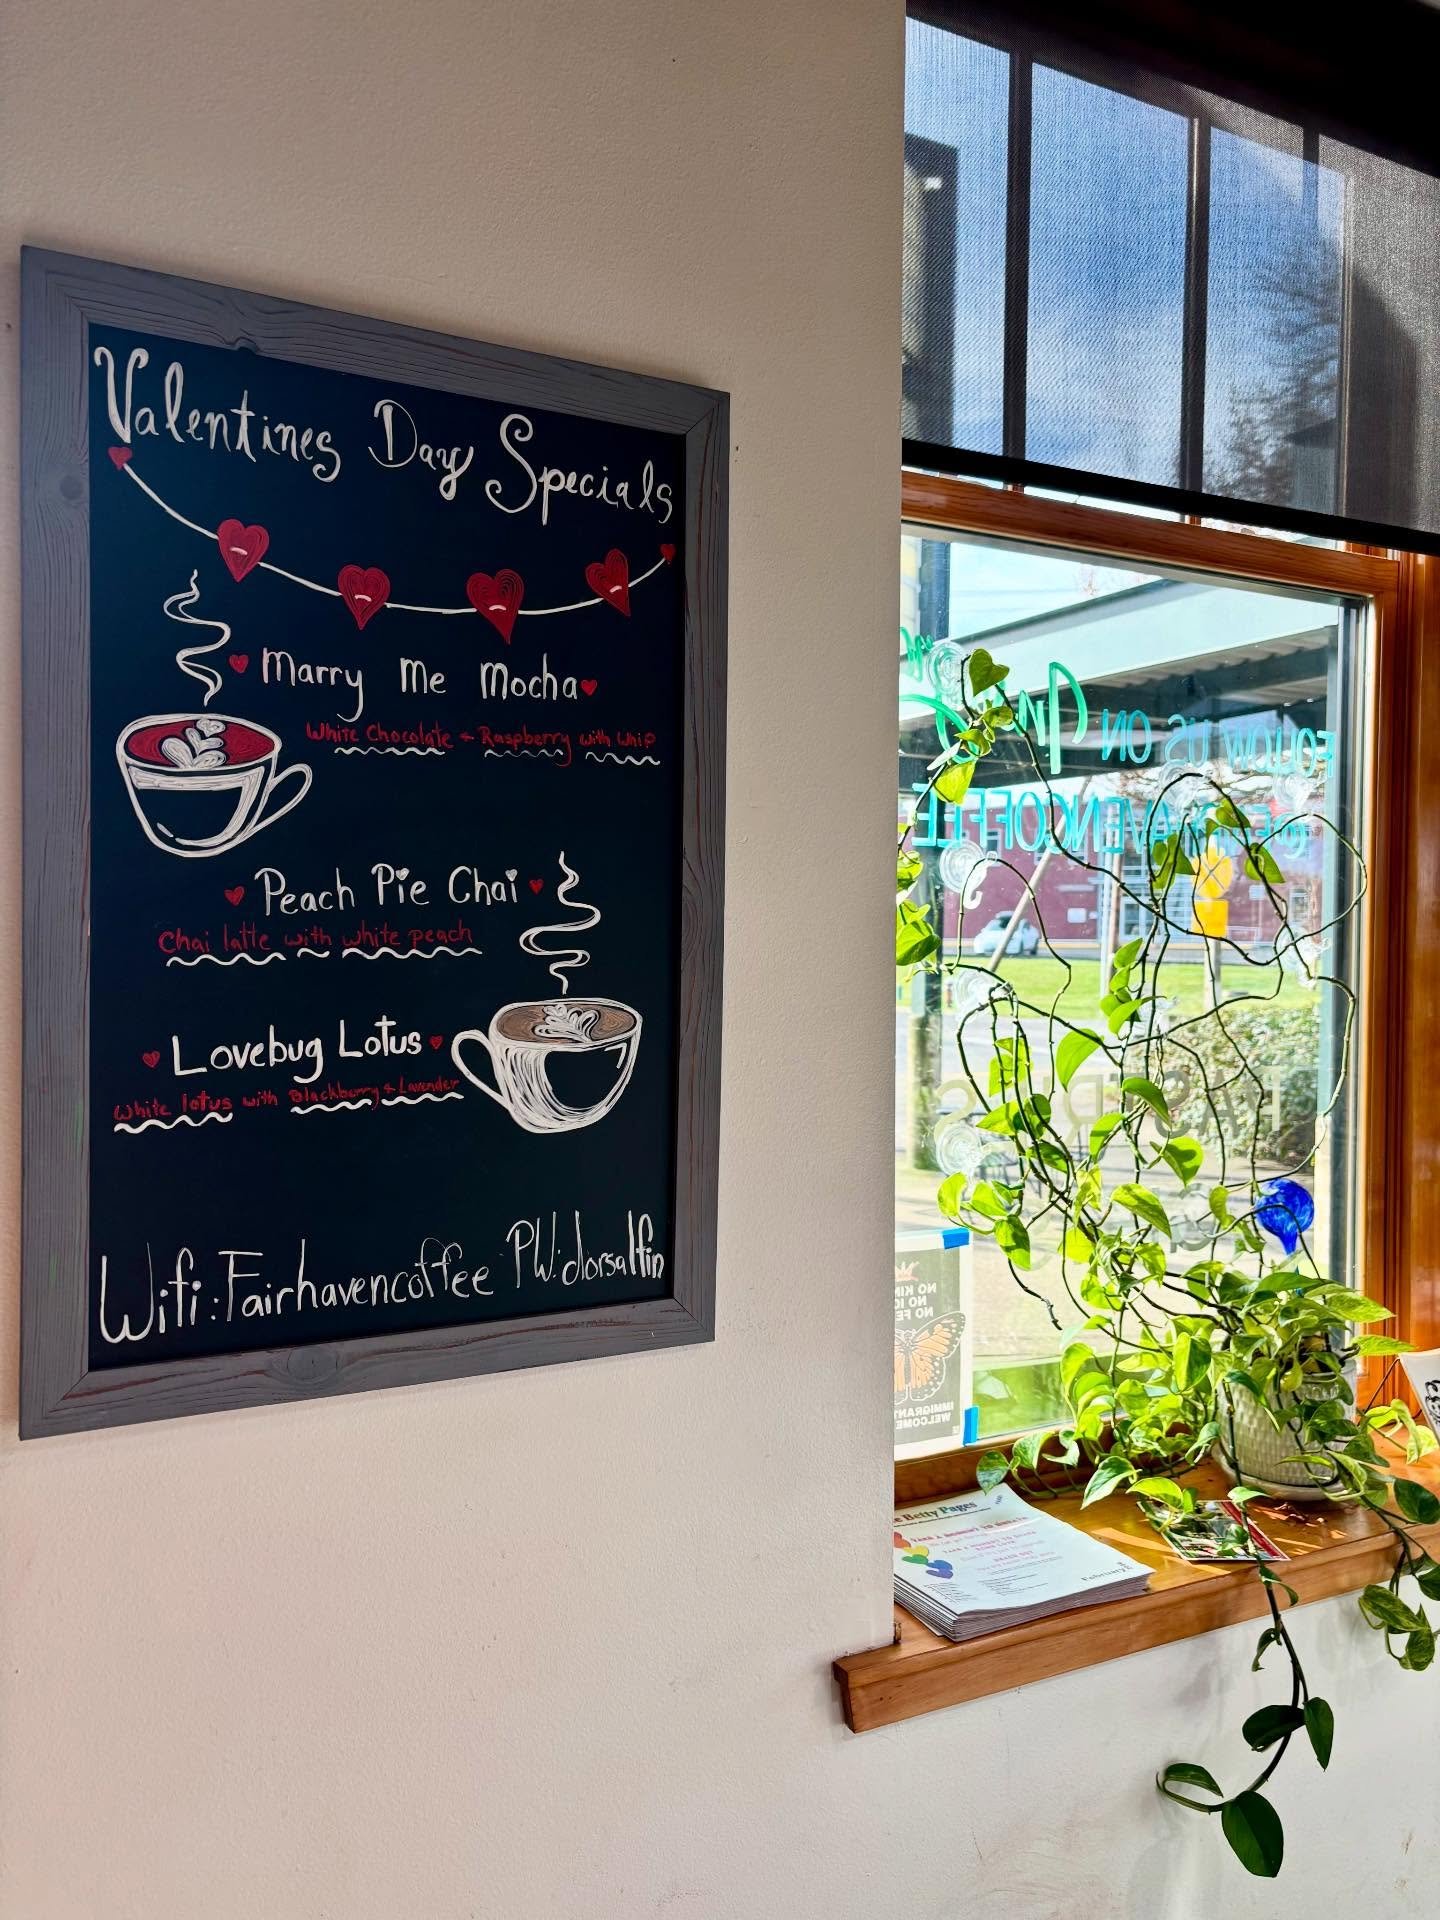 Valentines Day Specials
Marry Me Mocha
White Chocolate + Raspberry with whip
Peach Pie Chai
Chai latte with white peach
Lovebug Lotus
White lotus with Blackberry + Lavender
Wifi: Fairhavencoffee PW: dorsalfin
FOLLOW US ON
NO KIN
NO IC
NO FE
IMMIGRANT
WELCOME
Betty Pages
TAKE A MOMENT TO
February